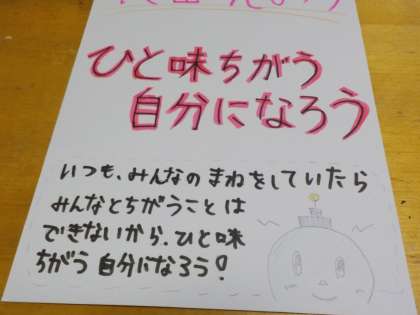 ひと味ちがう
自分になろう
いつも、みんなのまねをしていたら
みんなとちがうことは
できないから、ひと味
ちがう自分になろう!